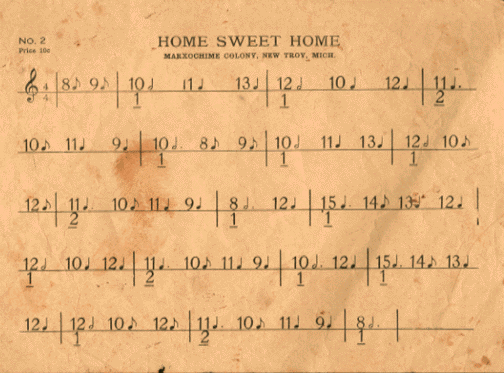 No. 2
Price 10c
HOME SWEET HOME
MARXOCHIME COLONY, NEW TROY, MICH.
4 4 8♪ 9♪ 10♩ 11♩ 13♩ 12♩ 10♩ 12♩ 11♩.
1 1 2
10♪ 11♩ 9♩ 10𝅗𝅥. 8♪ 9♪ 10♩ 11♩ 13♩ 12♩ 10♪
1 1 1
12♪ 11♩. 10♪ 11♩ 9♩ 8𝅗𝅥. 12♩ 15♩. 14♪ 13♩ 12♩
2 1 1
12𝅗𝅥 10♩ 12♩ 11♩. 10♪ 11♩ 9♩ 10𝅗𝅥. 12♩ 15♩. 14♪ 13♩
1 2 1 1
12♩ 12𝅗𝅥 10♪ 12♪ 11♩. 10♪ 11♩ 9♩ 8𝅗𝅥.
1 2 1